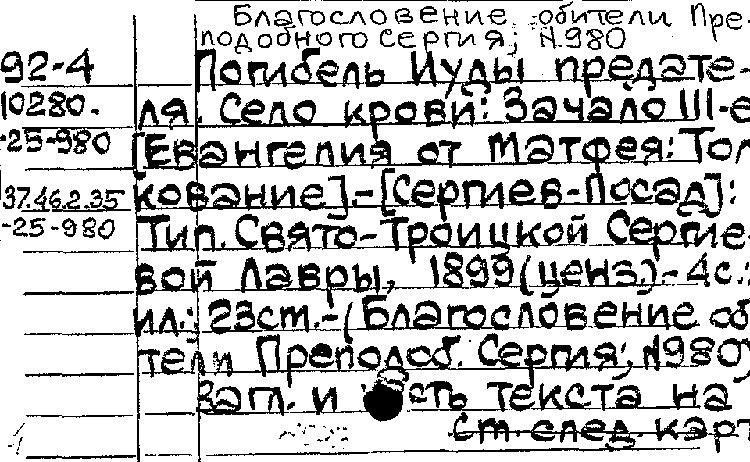 Благословение обители Пре-
подобного Сергия; N.980
92-4 Погибель Иуды предате-
10280. ля. Село крови: Зачало III-е
-25-980 [Евангелия от Матфея: Тол
37.46.2.35 кование].-[Сергиев-Посад]:
-25-980 Тип. Свято-Троицкой Сергие-
вой Лавры, 1899(ценз.).-4с.:
ил.; 23см.-(Благословение об
тели Преподоб. Сергия; N980)
Загл. и текста на
см. след. карт